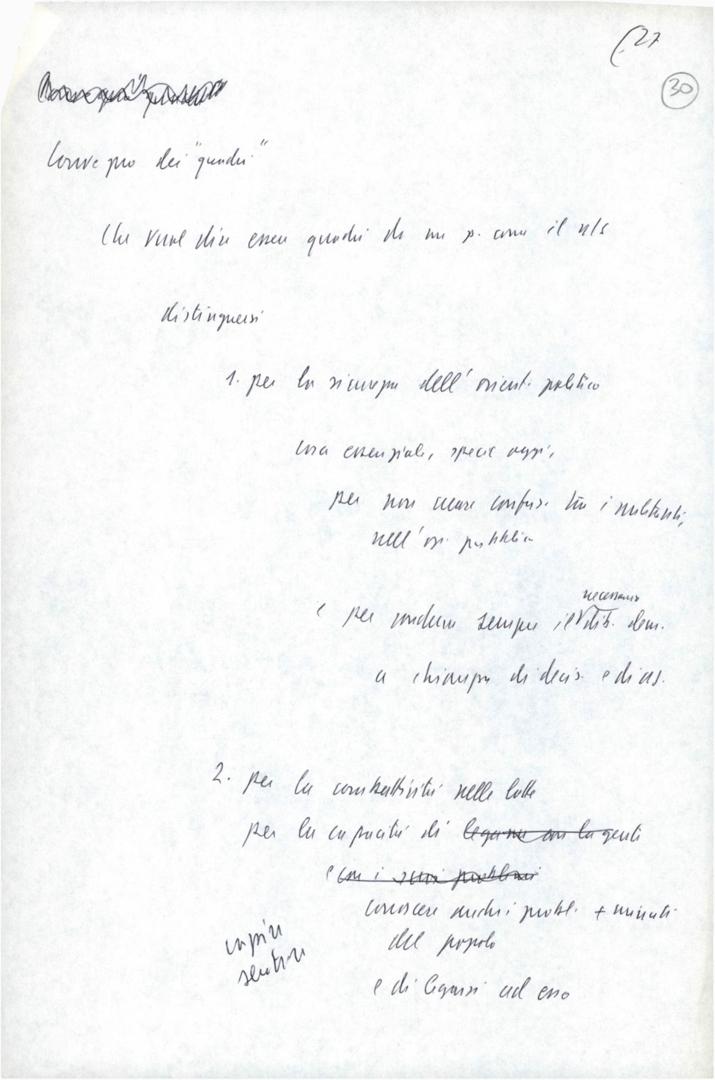 (27
30
Convegno dei "quadri"
Che vuol dire essere quadri di un p. come il ns
distinguersi
1. per la sicurezza dell'orient. politico
cosa essenziale, specie oggi,
per non creare confus. tra i militanti,
nell'op. pubblica
e per condurre sempre il necessario dib. dem.
a chiarezza di decis. e di az.
2. per la combattività nelle lotte
per la capacità di legame con la gente
e con i suoi problemi
conoscere anche i probl. + minuti
del popolo
e di legarsi ad esso
capire
sentire